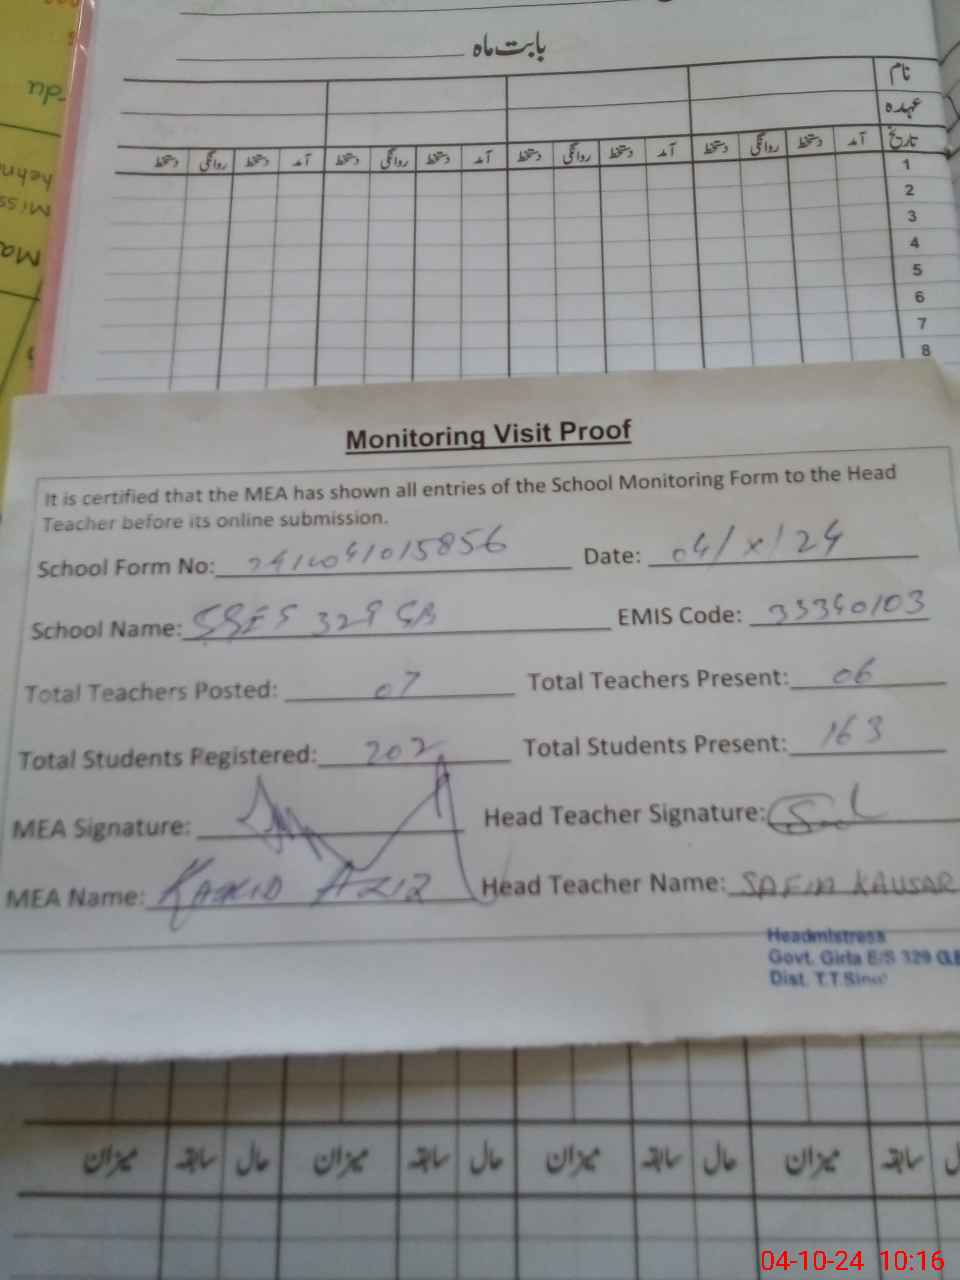 بابت ماہ
نام
عہدہ
تاریخ آمد دستخط روانگی دستخط آمد دستخط روانگی دستخط آمد دستخط روانگی دستخط آمد دستخط روانگی دستخط
1
2
3
4
5
6
7
8
Monitoring Visit Proof
It is certified that the MEA has shown all entries of the School Monitoring Form to the Head
Teacher before its online submission.
School Form No: Date: 04/x/24
School Name: 329 GB EMIS Code: 33340103
Total Teachers Posted: 07 Total Teachers Present: 06
Total Students Registered: 202 Total Students Present: 163
MEA Signature: Head Teacher Signature:
MEA Name: AZIZ Head Teacher Name: KAUSAR
Headmistress
Govt. Girls E/S 329
Dist. T.T.Singh
میزان سابقہ حال میزان سابقہ حال میزان سابقہ حال میزان سابقہ
04-10-24 10:16